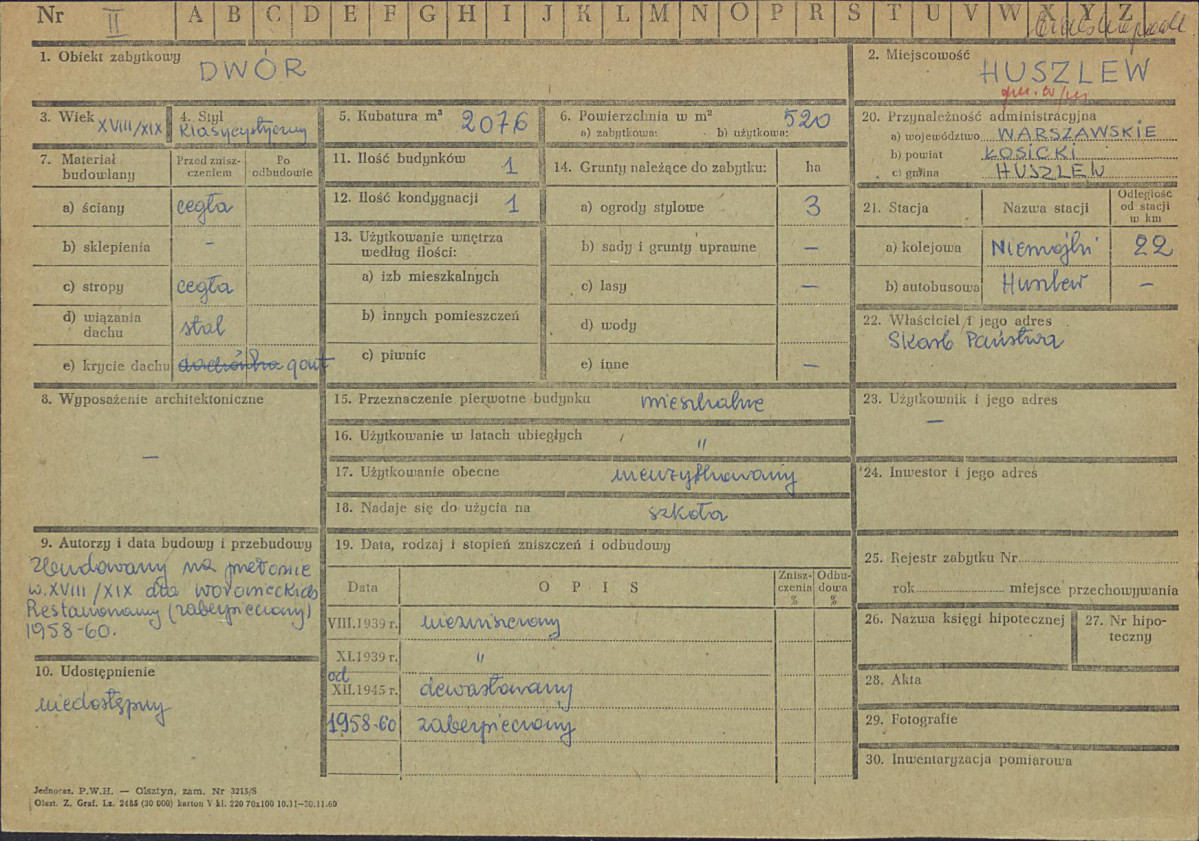 Nr II A B C D E F G H I J K L M N O P R S T U V W X Y Z
1. Obiekt zabytkowy
DWÓR
2. Miejscowość
HUSZLEW
3. Wiek XVIII/XIX
4. Styl
klasycystyczny
5. Kubatura m³ 2076
6. Powierzchnia w m² 520
a) zabytkowa: b) użytkowa:
20. Przynależność administracyjna
a) województwo WARSZAWSKIE
b) powiat ŁOSICKI
c) gmina HUSZLEW
7. Materiał budowlany
Przed zniszczeniem
Po odbudowie
a) ściany cegła
b) sklepienia –
c) stropy cegła
d) wiązania dachu stal
e) krycie dachu dachówka gont
11. Ilość budynków 1
12. Ilość kondygnacji 1
13. Użytkowanie wnętrza
według ilości:
a) izb mieszkalnych
b) innych pomieszczeń
c) piwnic
14. Grunty należące do zabytku: ha
a) ogrody stylowe 3
b) sady i grunty uprawne –
c) lasy –
d) wody
e) inne –
21. Stacja Nazwa stacji Odległość od stacji w km
a) kolejowa Niemojki 22
b) autobusowa Huszlew –
22. Właściciel i jego adres
Skarb Państwa
8. Wyposażenie architektoniczne
–
15. Przeznaczenie pierwotne budynku mieszkalne
16. Użytkowanie w latach ubiegłych / "
17. Użytkowanie obecne nieużytkowany
18. Nadaje się do użycia na szkoła
23. Użytkownik i jego adres
–
24. Inwestor i jego adres
9. Autorzy i data budowy i przebudowy
Zbudowany na przełomie
w. XVIII/XIX dla Woronieckich
Restaurowany (zabezpieczony)
1958-60.
10. Udostępnienie
niedostępny
19. Data, rodzaj i stopień zniszczeń i odbudowy
Data OPIS Zniszczenia % Odbudowa %
VIII.1939 r. niezniszczony
XI.1939 r. "
od
XII.1945 r. dewastowany
1958-60 zabezpieczony
25. Rejestr zabytku Nr
rok miejsce przechowywania
26. Nazwa księgi hipotecznej
27. Nr hipoteczny
28. Akta
29. Fotografie
30. Inwentaryzacja pomiarowa
Jednoraz. P.W.H. — Olsztyn, zam. Nr 3215/S
Olszt. Z. Graf. Lz. 2485 (30 000) karton V kl. 220 70x100 10.11—30.11.60